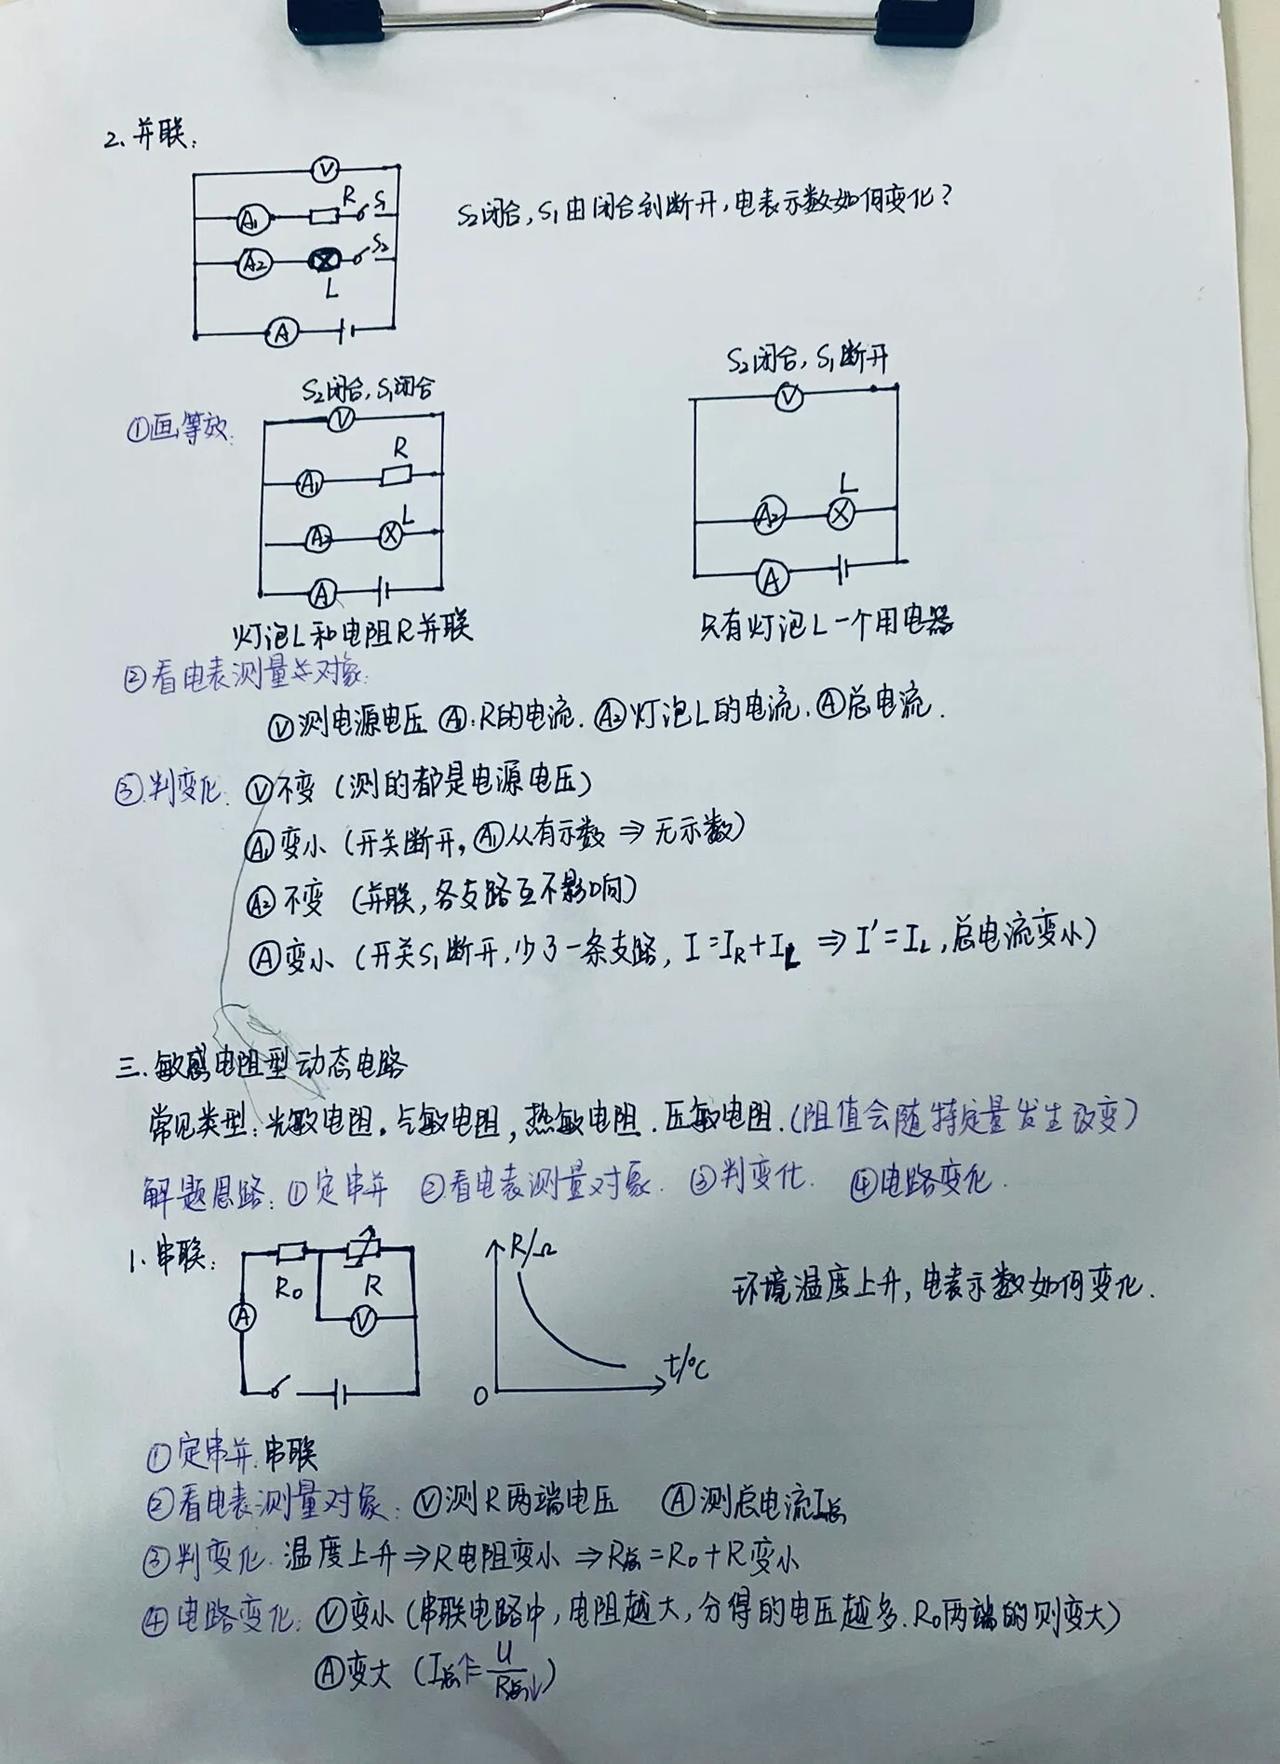 2.并联:
V
A₁ R S₁
S₂闭合,S₁由闭合到断开,电表示数如何变化?
A₂ L S₂
A
①画等效:
S₂闭合,S₁闭合
V
A₁ R
A₂ L
A
灯泡L和电阻R并联
S₂闭合,S₁断开
V
A₂ L
A
只有灯泡L一个用电器
②看电表测量对象:
Ⓥ测电源电压 A₁:R的电流. A₂灯泡L的电流. Ⓐ总电流.
③判变化: Ⓥ不变(测的都是电源电压)
A₁变小(开关断开,A₁从有示数⇒无示数)
A₂不变(并联,各支路互不影响)
Ⓐ变小(开关S₁断开,少了一条支路,I=I_R+I_L⇒I'=I_L,总电流变小)
三.敏感电阻型动态电路
常见类型:光敏电阻,气敏电阻,热敏电阻.压敏电阻.(阻值会随特定量发生改变)
解题思路:①定串并 ②看电表测量对象. ③判变化. ④电路变化.
1.串联:
R₀ R
A V
R/Ω
0 t/℃
环境温度上升,电表示数如何变化.
①定串并.串联
②看电表测量对象:Ⓥ测R两端电压 Ⓐ测总电流I总
③判变化.温度上升⇒R电阻变小⇒R总=R₀+R变小
④电路变化:Ⓥ变小(串联电路中,电阻越大,分得的电压越多.R₀两端的则变大)
Ⓐ变大(I总↑=U/R总↓)